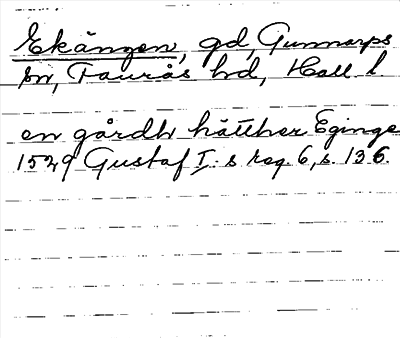 Ekängen, gd, Gunnarps
sn, Faurås hd, Hall l.
en gårdh hätther Eginge
1529 Gustaf I:s reg. 6, s. 136.